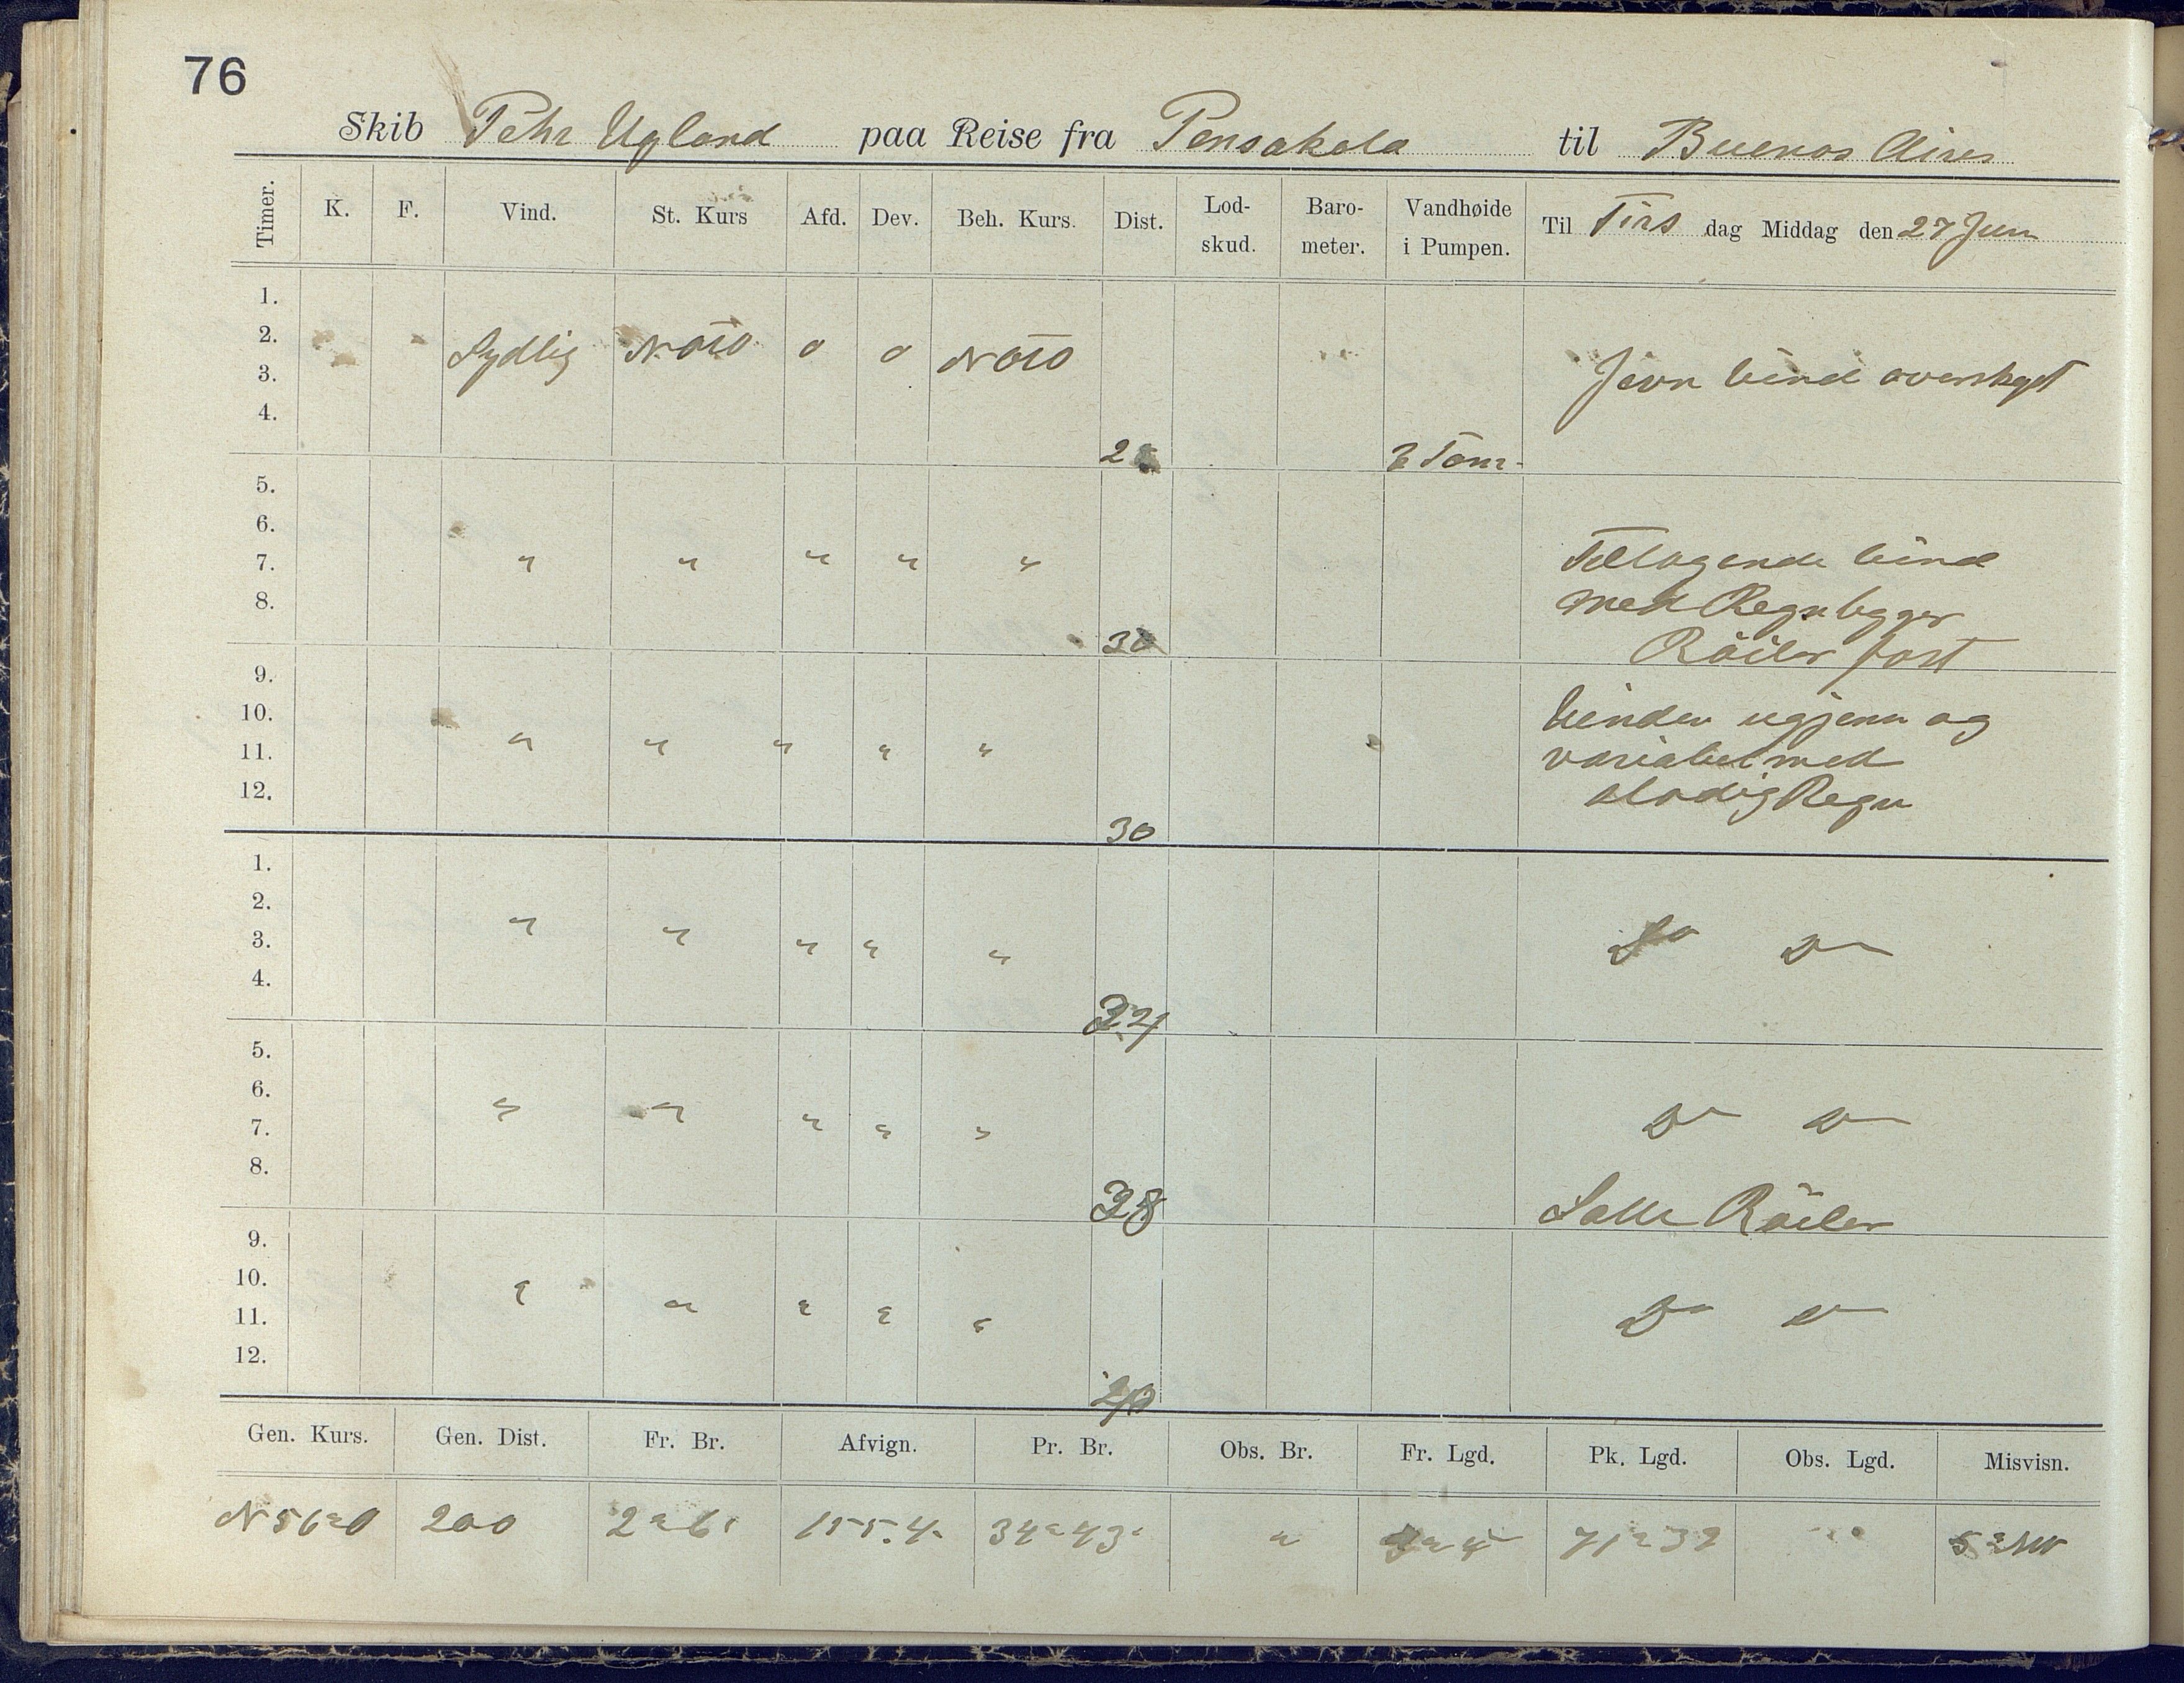 76
Skib Pehr Ugland paa Reise fra Pensakola til Buenos Aires
Timer. K. F. Vind. St. Kurs Afd. Dev. Beh. Kurs. Dist. Lod-skud. Baro-meter. Vandhøide i Pumpen. Til Tirs dag Middag den 27 Juni
1.
2. Sydlig NOtO o o NOtO
3. Jevn Vind overskyet
4.
3 Tom.
5.
6.
7. " " " " " Tiltagende Vind
8. med Regnbyger
30 Röiler fast
9.
10. Vinden ugjevn og
11. " " " " " variabel med
12. stadig Regn
30
1.
2.
3. " " " " " Do Do
4.
34
5.
6.
7. " " " " " Do Do
8.
38 Satte Röiler
9.
10.
11. " " " " " Do Do
12.
40
Gen. Kurs. Gen. Dist. Fr. Br. Afvign. Pr. Br. Obs. Br. Fr. Lgd. Pk. Lgd. Obs. Lgd. Misvisn.
N 51° O 200 2° 6' 155.4 34° 43' " 71° 32 5° W